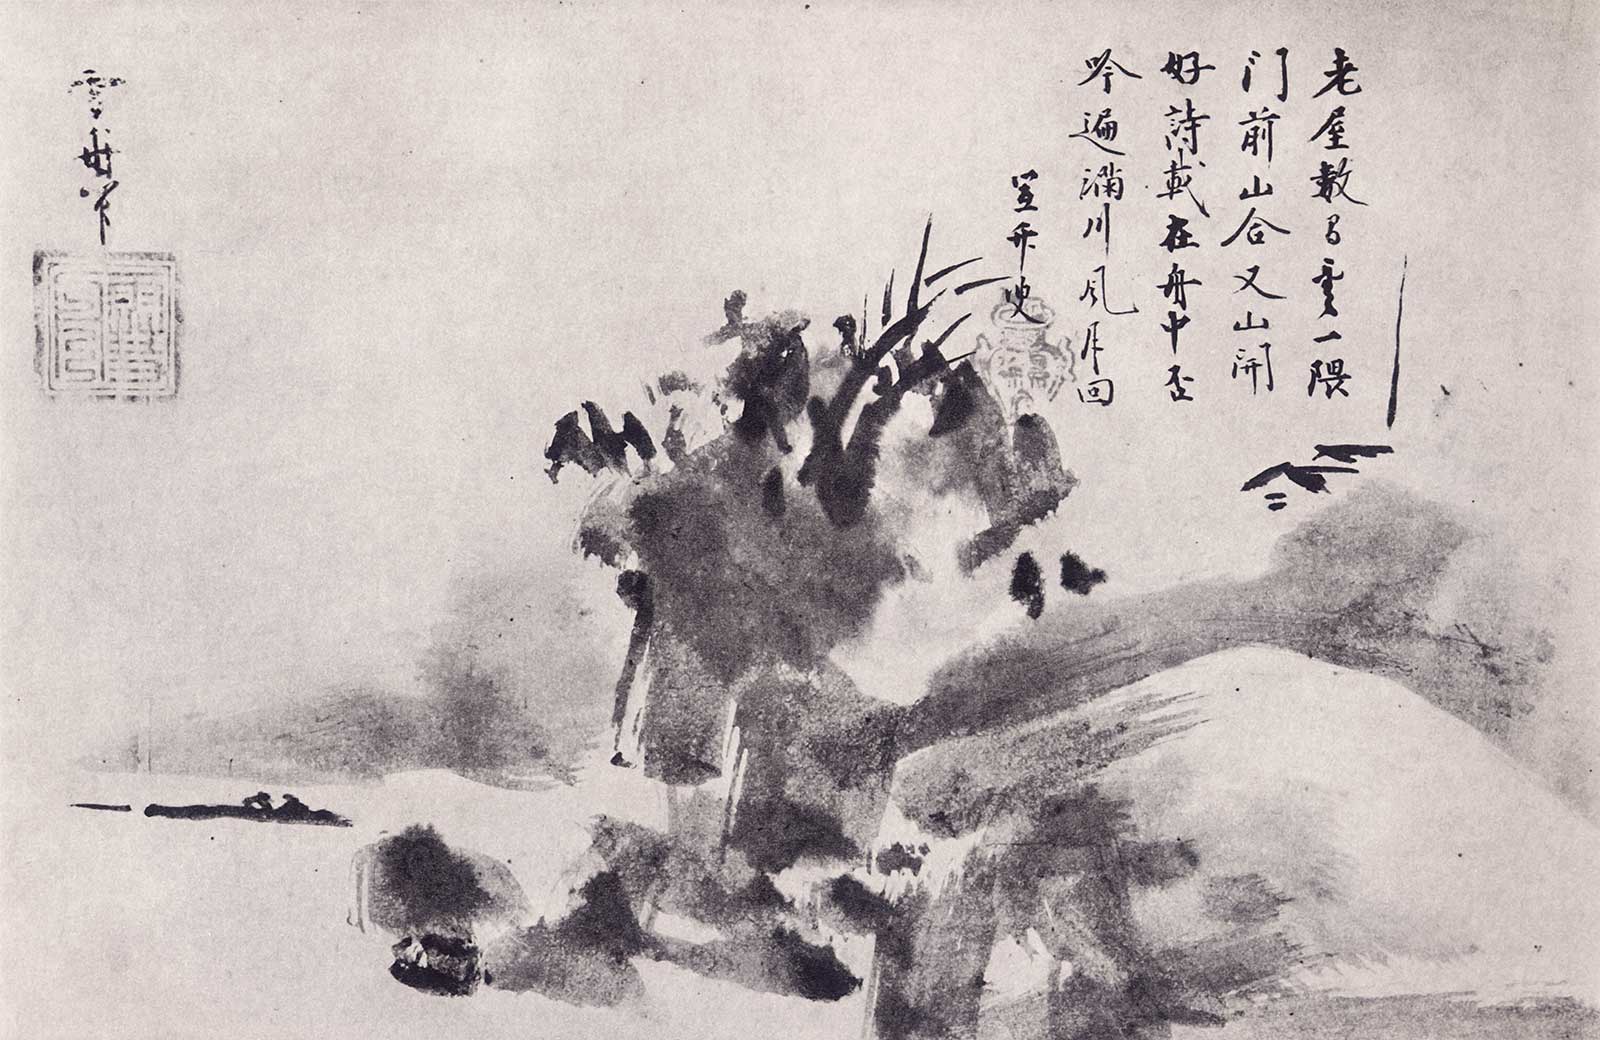 老屋數弓雲一隈
門前山合又山開
好詩載在舟中否
吟遍滿川風月回
雪舟筆